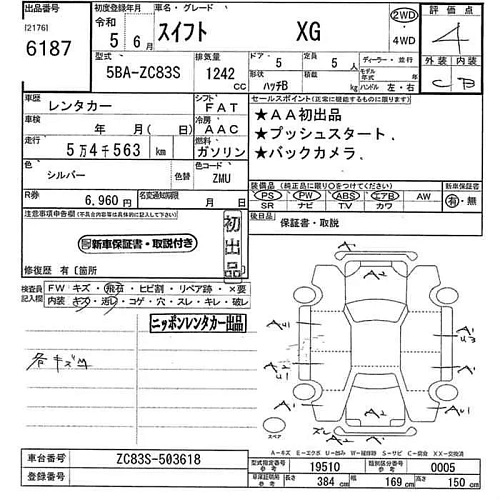 出品番号 初度登録年月 車名・グレード 評価点
[2176] 令和
6187 5 6月 スイフト XG 2WD 4WD 4
型式 排気量 ドア 定員 ディーラー・並行 外装 内装
5BA-ZC83S 1242 cc 5 5人 モデル年式 年
形状 ハッチB ハンドル 左・右 C B
車歴 レンタカー シフト FAT セールスポイント(正常に機能するものに限ります)
車検 年 月(日) 冷房 AAC ★AA初出品
走行 5万4千563 km 燃料 ガソリン ★プッシュスタート、
★バックカメラ、
色 シルバー 色替 色コード ZMU
R券 6,960円 名変期限 月 日
装備品(純正品に限り○をつけてください) 新車保証書
PS PW ABS エアB AW 有・無
SR ナビ TV カワ
注意事項申告欄(不具合等は具体的に記入して下さい) 初出品 後日品 保証書・取説
新車保証書・取説付き
修復歴 有[箇所
検査員記入欄 FW キズ・飛石・ヒビ割・リペア跡・×要
内装 キズ・汚レ・コゲ・穴・スレ・キレ・破レ
ニッポンレンタカー出品
各キズM
A
A2
AU1 A1 AU3
A2 U2 A1 U2
A1 A1
スレ A2
スペア
A-キズ E-エクボ U-凹み W-補修跡 S-サビ C-腐食 XX-交換済
車台番号 ZC83S-503618 型式指定番号 参考 19510 類別区分番号 参考 0005
登録番号 車体明細書 参考 長さ 384cm 幅 169cm 高さ 150cm